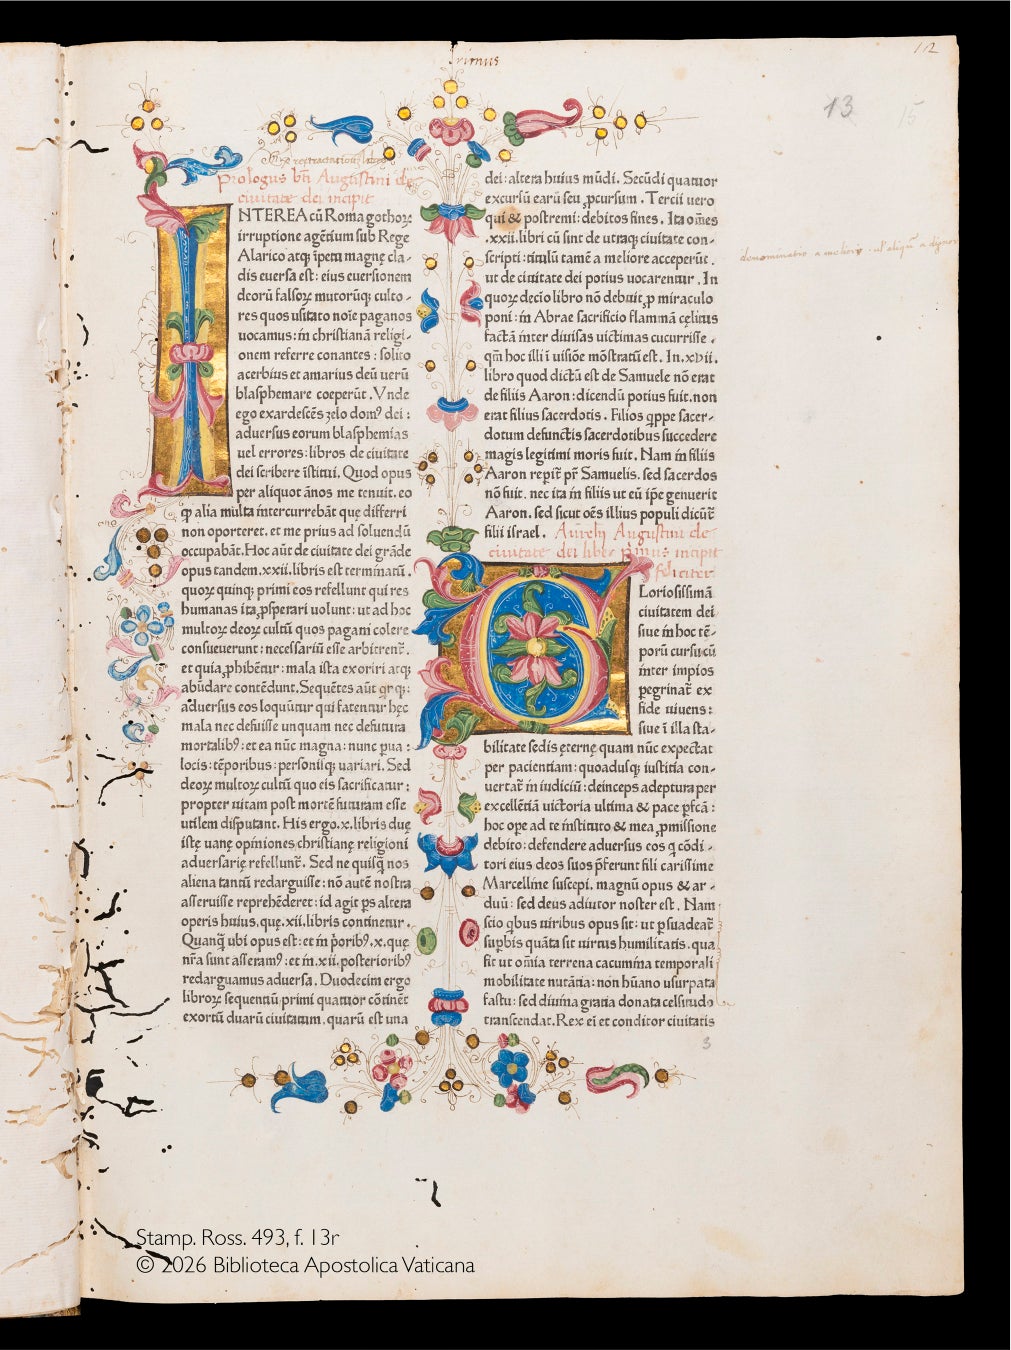 rimus
112
13
15
Prologus bti Augustini de
ciuitate dei incipit
INTEREA cū Roma gothoꝝ
irruptione agētium sub Rege
Alarico atqꝫ īpetu magnę cla-
dis euersa est: eius euersionem
deorū falsoꝝ mutorūqꝫ culto-
res quos usitato noīe paganos
uocamus: in christianā religi-
onem referre conantes: solito
acerbius et amarius deū uerū
blasphemare coeperūt. Vnde
ego exardescēs zelo domꝰ dei:
aduersus eorum blasphemias
uel errores: libros de ciuitate
dei scribere īstitui. Quod opus
per aliquot ānos me tenuit. eo
ꝙ alia multa intercurrebāt quę differri
non oporteret. et me prius ad soluendū
occupabāt. Hoc aūt de ciuitate dei grāde
opus tandem .xxii. libris est terminatū.
quoꝝ quinqꝫ primi eos refellunt qui res
humanas ita ꝓsperari uolunt: ut ad hoc
multoꝝ deoꝝ cultū quos pagani colere
consueuerunt: necessariū esse arbitrent̄.
et quia ꝓhibēt̄ur: mala ista exoriri atqꝫ
abūdare contēdunt. Sequētes aūt
aduersus eos loquūtur qui fatentur hęc
mala nec defuisse unquam nec defutura
mortalibꝰ: et ea nūc magna: nunc pua:
locis: tēporibus: personisqꝫ uariari. Sed
deoꝝ multoꝝ cultū quo eis sacrificatur:
propter uitam post mortē futuram esse
utilem disputant. His ergo .x. libris duę
istę uanę opiniones christianę religioni
aduersarię refellunt̄. Sed ne quisq̄ nos
aliena tantū redarguisse: nō autē nostra
asseruisse reprehēderet: id agit ps altera
operis huius, quę .xii. libris continetur.
Quanq̄ ubi opus est: et in prioribꝰ .x. quę
nr̄a sunt asseramꝰ: et in .xii. posterioribꝰ
redarguamus aduersa. Duodecim ergo
libroꝝ sequentiū primi quatuor cōtinēt
exortū duarū ciuitatum, quarū est una
dei: altera huius mūdi. Secūdi quatuor
excursū earū seu ꝓcursum. Tercii uero
qui & postremi: debitos fines. Ita oēs
.xxii. libri cū sint de utraqꝫ ciuitate con-
scripti: titulū tamē a meliore acceperūt.
ut de ciuitate dei potius uocarentur. In
quoꝝ decio libro nō debuit, ꝓ miraculo
poni: in Abrae sacrificio flammā cęlitus
factā inter diuisas uictimas cucurrisse.
qm̄ hoc illi ī uisiōe mōstratū est. In .xvii.
libro quod dictū est de Samuele nō erat
de filiis Aaron: dicendū potius fuit. non
erat filius sacerdotis. Filios qippe sacer-
dotum defunctis sacerdotibus succedere
magis legitimi moris fuit. Nam in filiis
Aaron reꝑit̄ pr̄ Samuelis. sed sacerdos
nō fuit. nec ita in filiis ut eū ipe genuerit
Aaron. sed sicut oēs illius populi dicūt̄
filii israel. Aurelij Augustini de
ciuitate dei liber primus incipit
feliciter
GLoriosissimā
ciuitatem dei
siue in hoc tē-
porū cursu cū
inter impios
peregrinat̄ ex
fide uiuens:
siue ī illa sta-
bilitate sedis ęternę quam nūc expectat
per pacientiam: quoadusqꝫ iustitia con-
uertat̄ in iudiciū: deinceps adeptura per
excellētiā uictoria ultima & pace ꝑfcā:
hoc ope ad te instituto & mea ꝓmissione
debito: defendere aduersus eos q̄ cōdi-
tori eius deos suos p̄ferunt fili carissime
Marcelline suscepi, magnū opus & ar-
duū: sed deus adiutor noster est. Nam
scio qbus uiribus opus sit: ut ꝑsuadeat̄
supbis quāta sit uirtus humilitatis. qua
fit ut omīa terrena cacumina temporali
mobilitate nutātia: non hūano usurpata
fastu: sed diuina gratia donata celsitudo
transcendat. Rex ei et conditor ciuitatis
denominatio a meliori
3
Stamp. Ross. 493, f. 13r
© 2026 Biblioteca Apostolica Vaticana